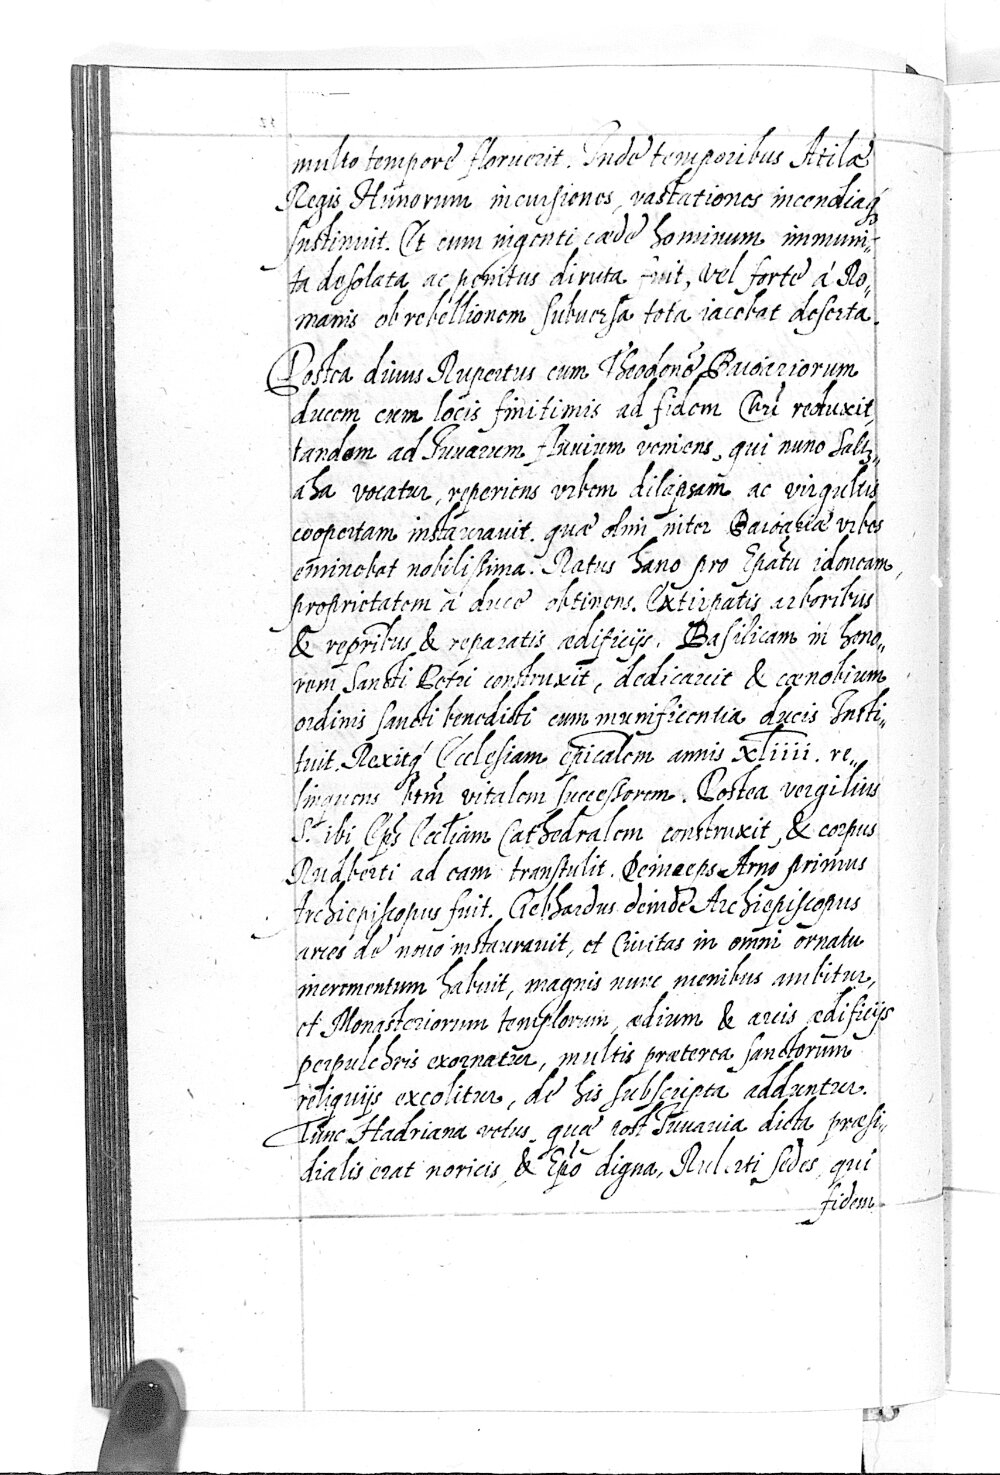 multo tempore floruerit. Inde temporibus Atilæ
Regis Hunorum incursiones, vastationes incendiaq3
sustinuit. Et cum ingenti cæde hominum immuni-
ta desolata ac penitus diruta fuit, vel forte á Ro-
manis ob rebellionem subuersa tota iacebat deserta.
Postea diuus Rupertus cum Theodone Baioariorum
ducem cum locis finitimis ad fidem Chri reduxit,
tandem ad Iuuarum fluuium veniens, qui nunc Saltz-
aha vocatur, reperiens vrbem dilapsam ac virgultis
coopertam instaurauit. quæ olim inter Baioariæ vrbes
eminebat nobilissima. Ratus hanc pro Epatu idoneam,
proprietatem á duce obtinens. Extirpatis arboribus
& repribus & reparatis ædificijs. Basilicam in hono-
rem Sancti Petri construxit, dedicauit & cœnobium
ordinis sancti benedicti cum munificentia ducis Insti-
tuit. Rexitq Ecclesiam epicalem annis XLiiii. re-
linquens btm vitalem successorem. Postea vergilius
S. ibi Eps Eccliam Cathedralem construxit, & corpus
Rudberti ad eam transtulit. Deinceps Arno primus
Archiepiscopus fuit. Gebhardus deinde Archiepiscopus
arces de nouo instaurauit, et Ciuitas in omni ornatu
incrementum habuit, magnis nunc menibus ambitur,
et Monasteriorum templorum, ædium & arcis ædificijs
perpulchris exornatur, multis præterea sanctorum
reliquijs excolitur, de his subscripta adduntur.
Tunc Hadriana vetus, quæ post Iuuauia dicta præsi-
dialis erat noricis, & Epo digna, Ruberti sedes, qui
fidem